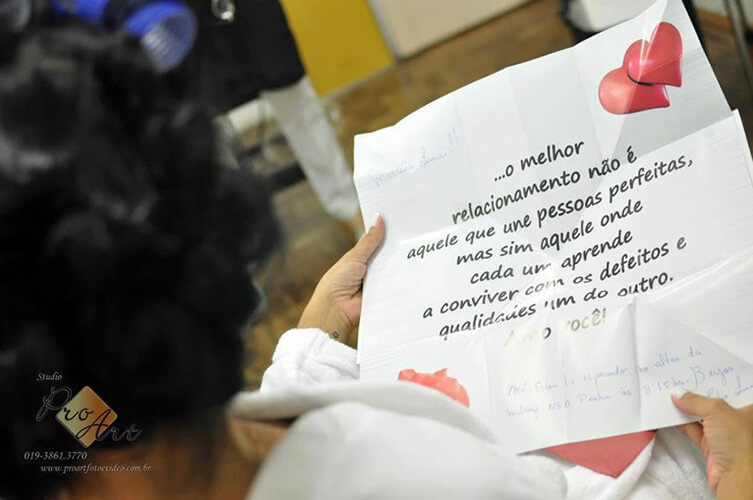 ...o melhor
relacionamento não é
aquele que une pessoas perfeitas,
mas sim aquele onde
cada um aprende
a conviver com os defeitos e
qualidades um do outro.
você!
altar da
as
Studio
Pro Art
019-3861.3770
www.proartfotoevideo.com.br